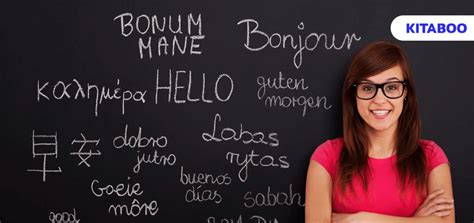 KITABOO
BONUM
MANE
Bonjour
καλημέρα
HELLO
guten
morgen
早安
dobro
jutro
Labas
rytas
Goeie
môre
buenos
días
sabah